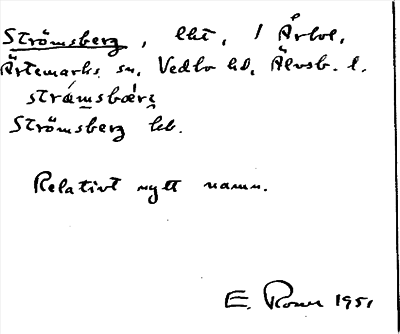 Strömsberg, lht, 1 Årbol,
Ärtemarks sn, Vedbo hd, Älvsb. l.
strámsbær̀g
Strömsberg kb.
Relativt nytt namn.
E. Rosen 1951